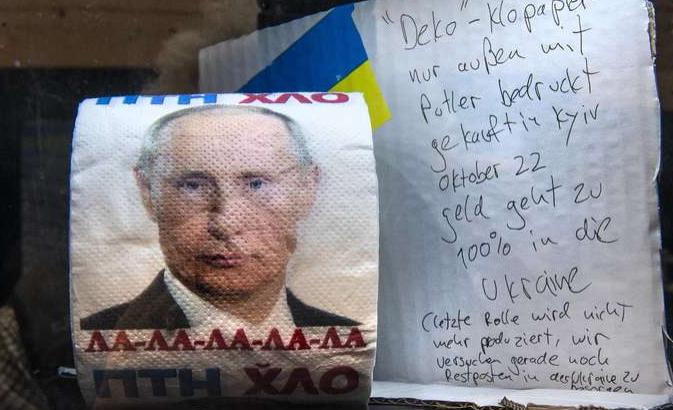 ПТН Х̌ЛО
ЛА-ЛА-ЛА-ЛА-ЛА
ПТН Х̌ЛО
"Deko"-Klopapier
nur außen mit
Putler bedruckt
gekauft in Kyiv
Oktober 22
geld geht zu
100% in die
Ukraine
(letzte Rolle wird nicht
mehr produziert, wir
versuchen gerade noch
Restposten in der Ukraine zu